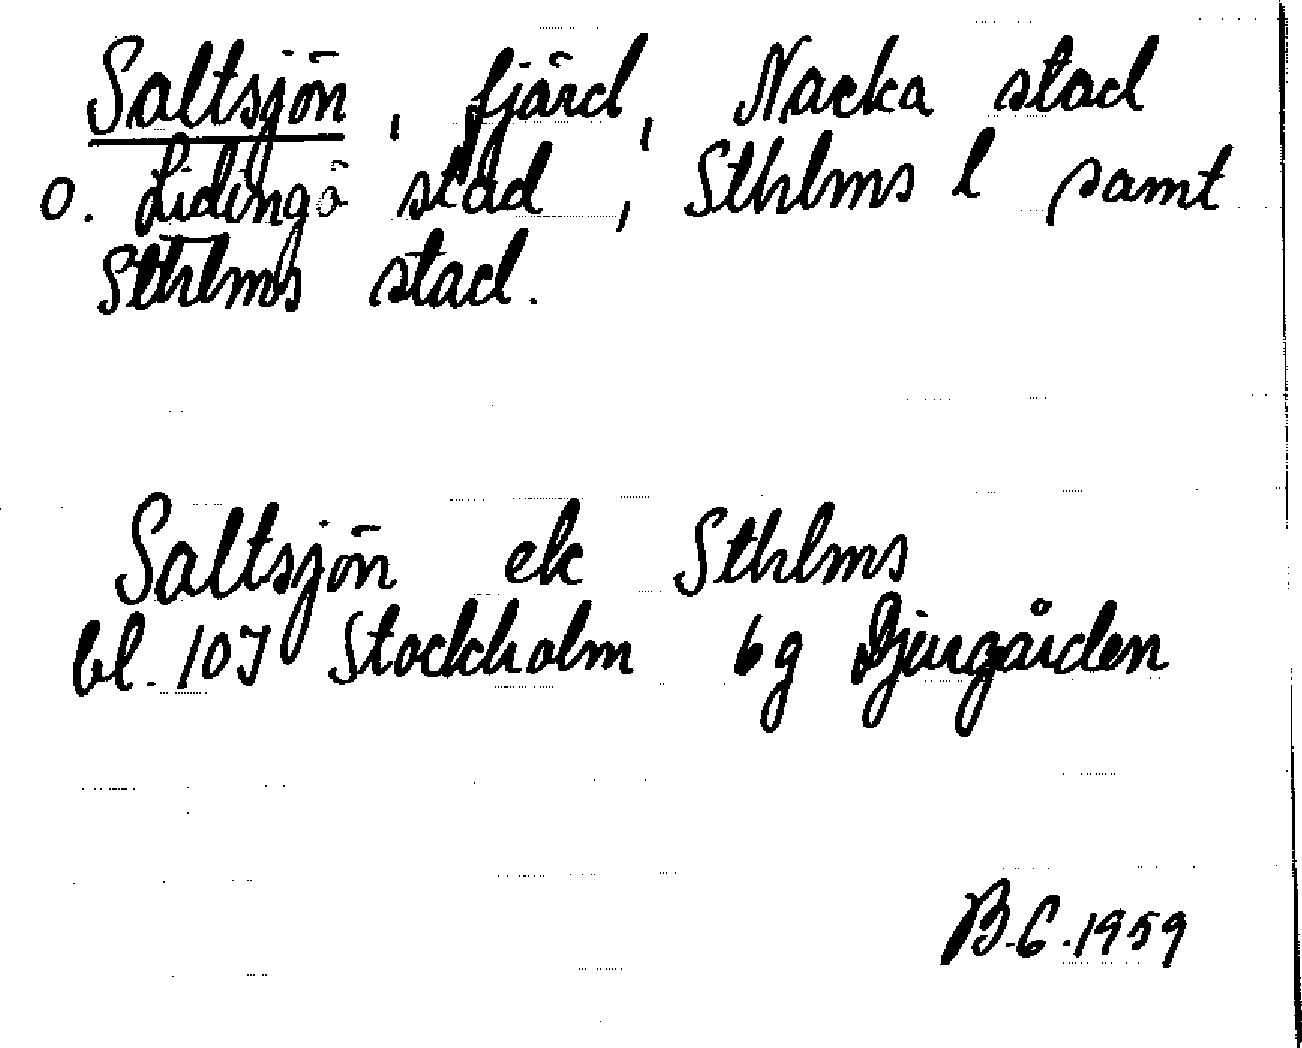 Saltsjön, fjärd, Nacka stad
o. Lidingö stad, Sthlms l samt
Sthlms stad.
Saltsjön ek Sthlms
bl. 10I Stockholm 6g Djurgården
B.G.1959